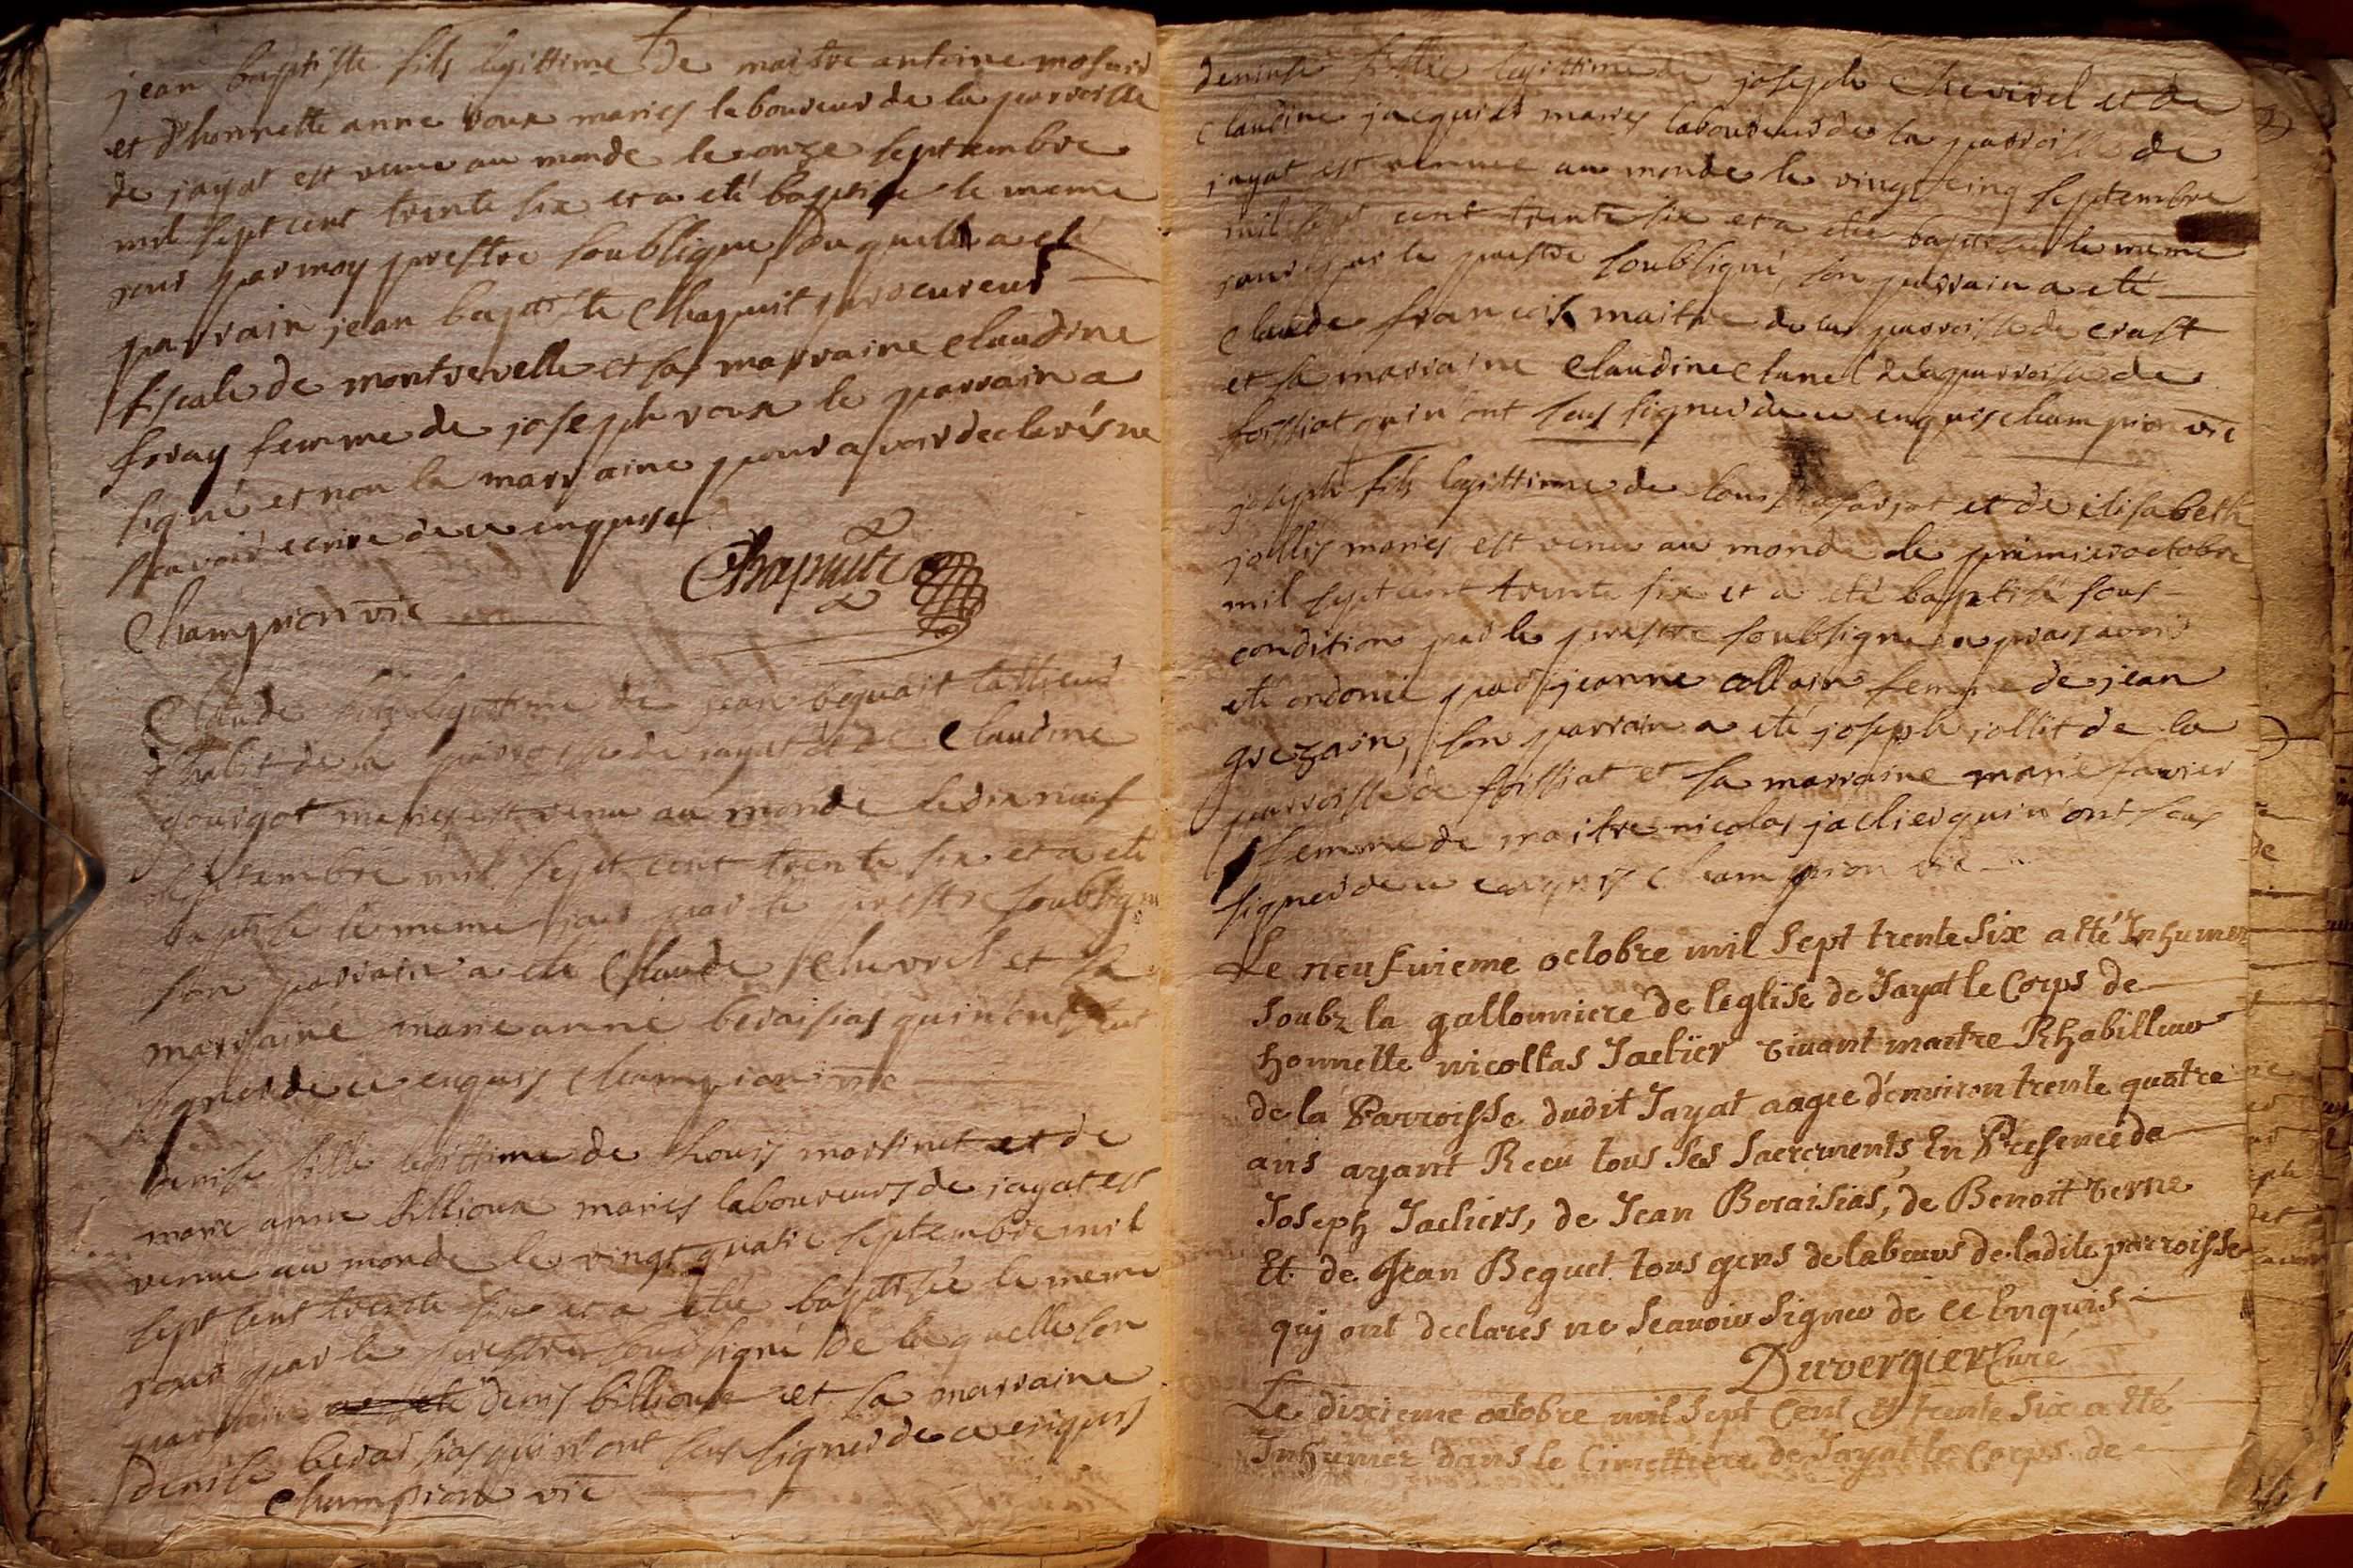 jean baptiste fils legittime de maitre antoine
et d'honnette anne roux maries laboureurs de la parroisse
de jayat est venu au monde le onze septembre
mil sept cent trente six et a eté baptise le meme
jour par moy prestre soubsigne, duquell a eté
parrain jean baptiste Chapuit procureur
fiscale de montrevelle et sa marraine claudine
foray femme de joseph roux le parrain a
signé et non la marraine pour avoir declarés ne
scavoir ecrire de ce enquise
Chapuite
Champion vic
Claude fils legittime de jean bequait tallieur
d'habit de la parroisse de jayat et de Claudine
gourgot maries est venu au monde le dix neuf
septembre mil sept cent trente six et a eté
baptise le meme jour par le prestre soubsigne
son parrain a eté Claude Chevrel et sa
marraine marie anne beraisias qui n'ont sceut
signer de ce enquis Champion vic
denise fille legittime de Louis martinet et de
marie anne billioux maries laboureurs de jayat est
venue au monde le vingt quatre septembre mil
sept cent trente six et a etée baptisée le meme
jour par le prestre soubsigné de laquelle son
parrain a eté denis billioux et sa marraine
denise beraisias qui n'ont sceu signer de ce enquis
Champion vic
denise fille legittime de joseph Chevrel et de
Claudine jacquier maries laboureurs de la parroisse de
jayat est venue au monde le vingt cinq septembre
mil sept cent trente six et a etée baptisée le meme
jour par le prestre soubsigné, son parrain a eté
Claude francois maitre de la parroisse de crast
et sa marraine Claudine Clunel de la parroisse de
foissiat qui n'ont sceus signer de ce enquis Champion vic
joseph fils legittime de Louis et de elisabeth
jollis maries est venu au monde le premier octobre
mil sept cent trente six et a eté baptisé sous
condition par le prestre soubsigne apres avoir
eté ondoñe par jeanne collain femme de jean
grezain, son parrain a eté joseph jollit de la
parroisse de foissiat et sa marraine marie favier
femme de maitre nicolas jaclier qui n'ont sceus
signer de ce enquis Champion vic
Le neufvieme octobre mil Sept trente Six a êté Inhumer
Soubz la gallonniere de l'eglise de Jayat le Corps de
honnette nicollas Jaclier vivant maitre Rhabilleur
de la Parroisse dudit Jayat aagée d'environ trente quatre
ans ayant Recu tous Ses Sacrements, En Presence de
Joseph Jacliers, de Jean Beraisias, de Benoit verne
Et de Jean Bequet tous gens de labeurs de ladite parroisse
qui ont declarés ne Scavoir Signer de ce Enquis
Duvergier Curé
Le dixieme octobre mil Sept Cent et trente Six a êté
Inhumer dans le Cimettiere de Jayat le Corps de